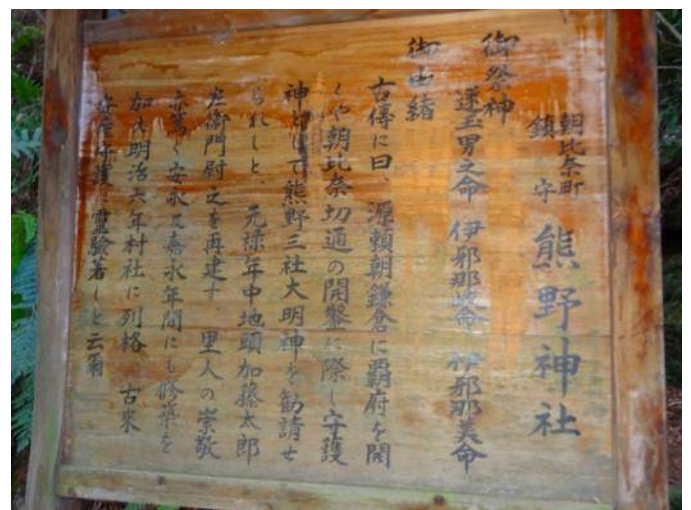 朝比奈町
鎮守
熊野神社
御祭神
速玉男之命 伊邪那岐命 伊邪那美命
御由緒
古傳に曰、源頼朝鎌倉に覇府を開
くや朝比奈切通の開鑿に際し守護
神として熊野三社大明神を勧請せ
られしと、元禄年中地頭加藤太郎
左衛門尉之を再建す 里人の崇敬
亦篤く安永及嘉永年間にも修築を
加へ明治六年村社に列格 古来
安産守護に霊験著しと云爾